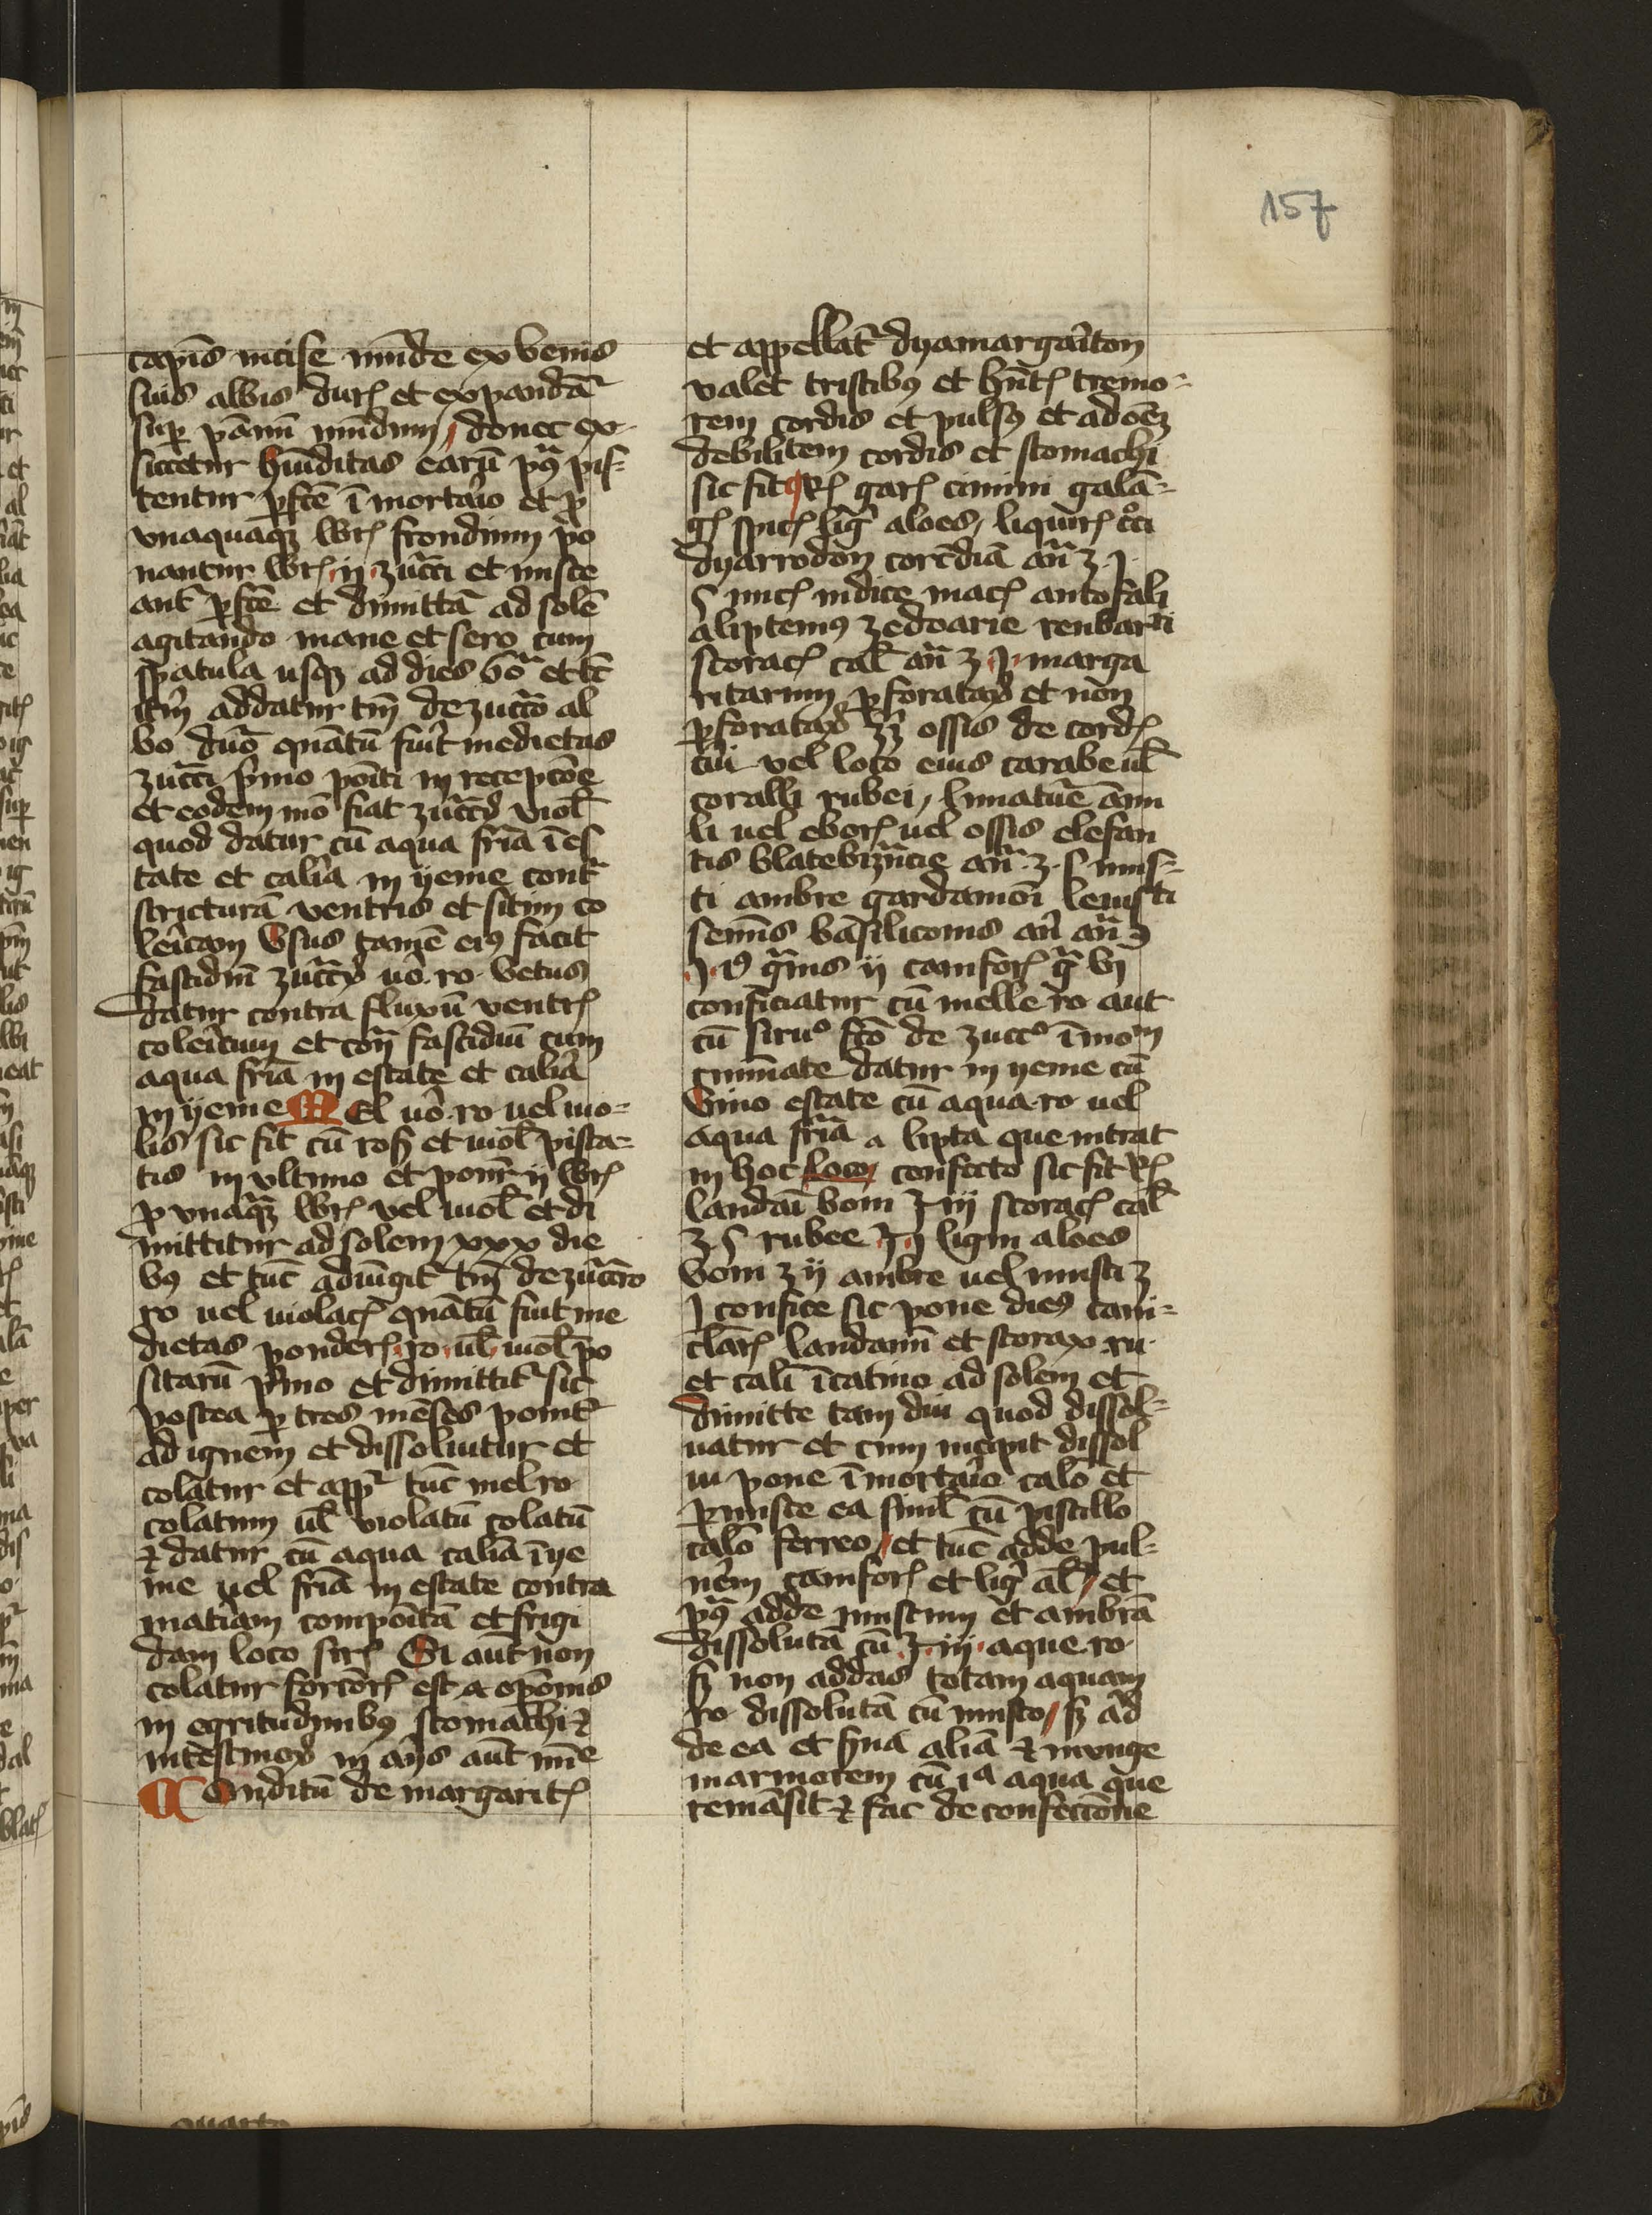 157
capis incise munde ex venis
suis albis dur et expandā
sup pānū mūdum donec ex
siccetur hūiditas earū pꝰ pis
tentur pfcē ī mortaīo et p
vnaquāqꝫ libr frondium po
nantur libr ij zucci et misce
ant pfcē et dimittā ad solē
agitando mane et sero cum
spatula usqꝫ ad dies
addatur tm̄ de zuccō al
bo quātū fuīt medietas
zucci pimo poīti in recepcōe
et eodem mō fiat zuccꝰ viol
quod datur cū aqua frīa ī es
tate et calīa in yeme cont
stricturā ventris et sitim co
leīcam Vsus tamē eiꝰ facit
fastidiū ro vetus
datur contra fluxū ventr
coleīcum et fastidiū cum
aqua frīa in estate et calīa
in yeme Mel ro uel uio
lis sic fit cū ros et uiol pista
tis in vltimo et ponīt ij libr
p vnaqꝫ libr vel uiol et di
mittitur ad solem xxx die
bꝰ et tūc adiūgit tm̄ de zuccro
ro uel uiolac quātū fuit me
dietas ponder ro ul uiol po
sitarū pimo et dimittit sic
postea p tres mēses ponit
ad ignem et dissoluitur et
colatur et app tūc mel ro
colatum ul violatū colatū
⁊ datur cū aqua calīa ī ye
me uel frīa in estate contra
matīam compoītā et frigi
dam loco sir Si aūt non
colatur forcōr est opōnis
in egritudinibꝰ stomachi ⁊
intestinoꝝ in aīs aūt
Conditū de margarit
et appellat dyamargarīton
valet tristibꝰ et hn̄t tremo
rem cordis et pulsꝰ et ad oēꝫ
debilitem cordis et stomachi
sic fit Rͬ gar cinimi galā
g spic lig aloes liquir
dyarrodon an ʒ j
s nuc indice mac antofali
aliptemꝰ zedoarie reubarti
storac cal an ʒ j marga
ritarum pforataꝝ et non
pforataꝝ ossis de cord
cui vel loco eius carabe ul
coralli rubei limatūe
li uel ebor uel ossis elefan
tis blatebizācie an ʒ s mus
ti ambre gardamoī leuisti
semīs basiliconis
gnis ij camfor gͣ vj
conficiatur cū melle ro aut
cū siruᵒ fcō de zuccᵒ ī mom
cuminate datur in yeme cū
vino estate cū aqua ro uel
aqua frīa a lipta que intrat
in hoc loco confecto sic fit Rͬ
landaī boni ℥ iij storac cal
℥ s rubee ℥ j ligni aloes
boni ʒ ij ambre uel musti ʒ
j confice sic pone dies cani
clar landanū et storax ru
et cali ī catino ad solem et
dimitte tam diu quod dissol
uatur et cum incipit dissol
ui pone ī mortaīo calō et
pmisce ea simil cū pistillo
calō ferreo et tūc adde pul
uēm camfor et lig al et
pꝰ adde mustum et ambrā
dissolutā cū ℥ iij aque ro
sꝫ non addas totam aquam
ro dissolutā cū musto sꝫ ad
de ea et sua aliā ⁊ inunge
marmorem cū iᵃ aqua que
remāsit ⁊ fac de confectiōne